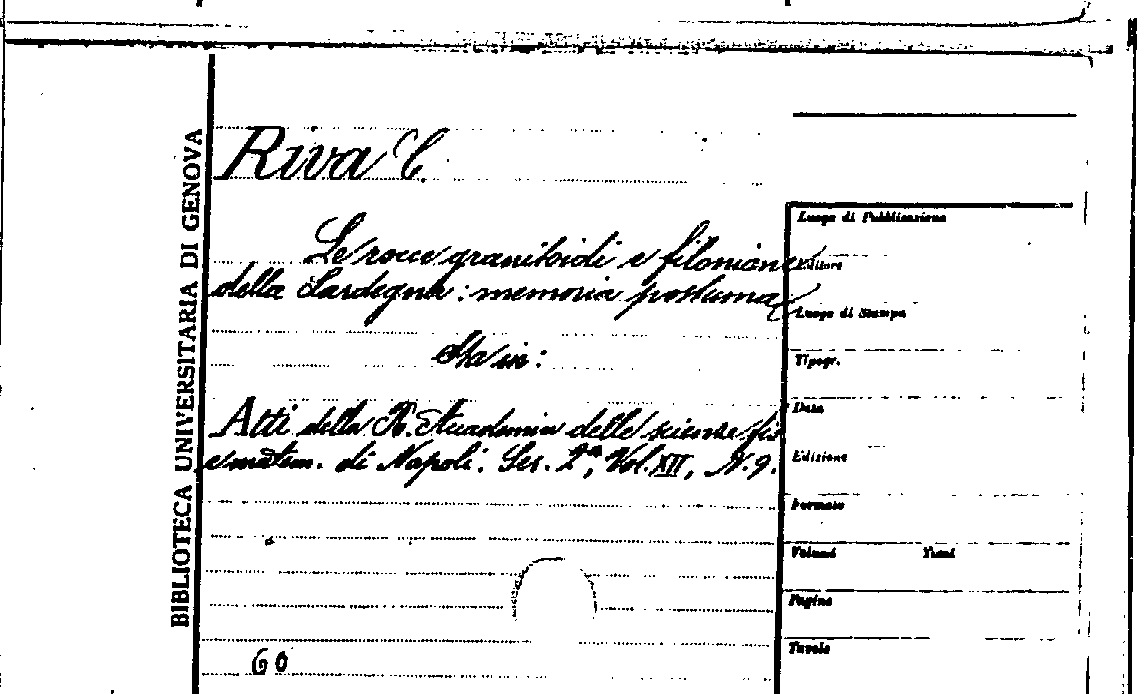 BIBLIOTECA UNIVERSITARIA DI GENOVA
Riva C.
Le rocce granitoidi e filoniane
della Sardegna: memoria postuma
Sta in:
Atti della R. Accademia delle scienze fis.
e matem. di Napoli. Ser. 2ª, Vol. XII, N. 9.
60
Luogo di Pubblicazione
Editore
Luogo di Stampa
Tipogr.
Data
Edizione
Formato
Volumi Tomi
Pagine
Tavole